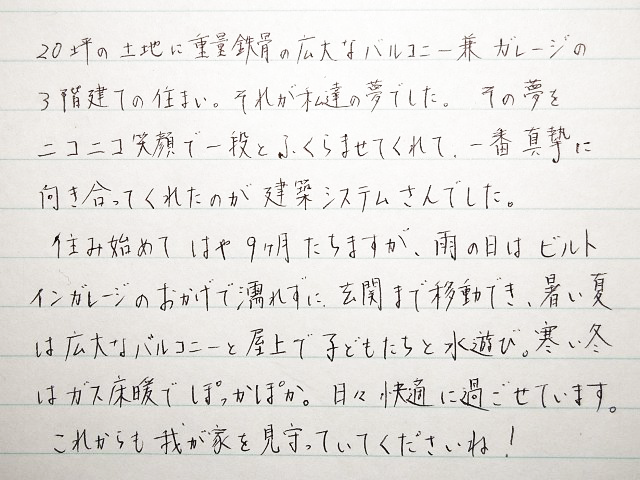 20坪の土地に重量鉄骨の広大なバルコニー兼ガレージの
3階建ての住まい。それが私達の夢でした。その夢を
ニコニコ笑顔で一段とふくらませてくれて、一番真摯に
向き合ってくれたのが建築システムさんでした。
住み始めてはや9ヶ月たちますが、雨の日はビルト
インガレージのおかげで濡れずに玄関まで移動でき、暑い夏
は広大なバルコニーと屋上で子どもたちと水遊び。寒い冬
はガス床暖でぽっかぽか。日々快適に過ごせています。
これからも我が家を見守っていてくださいね!